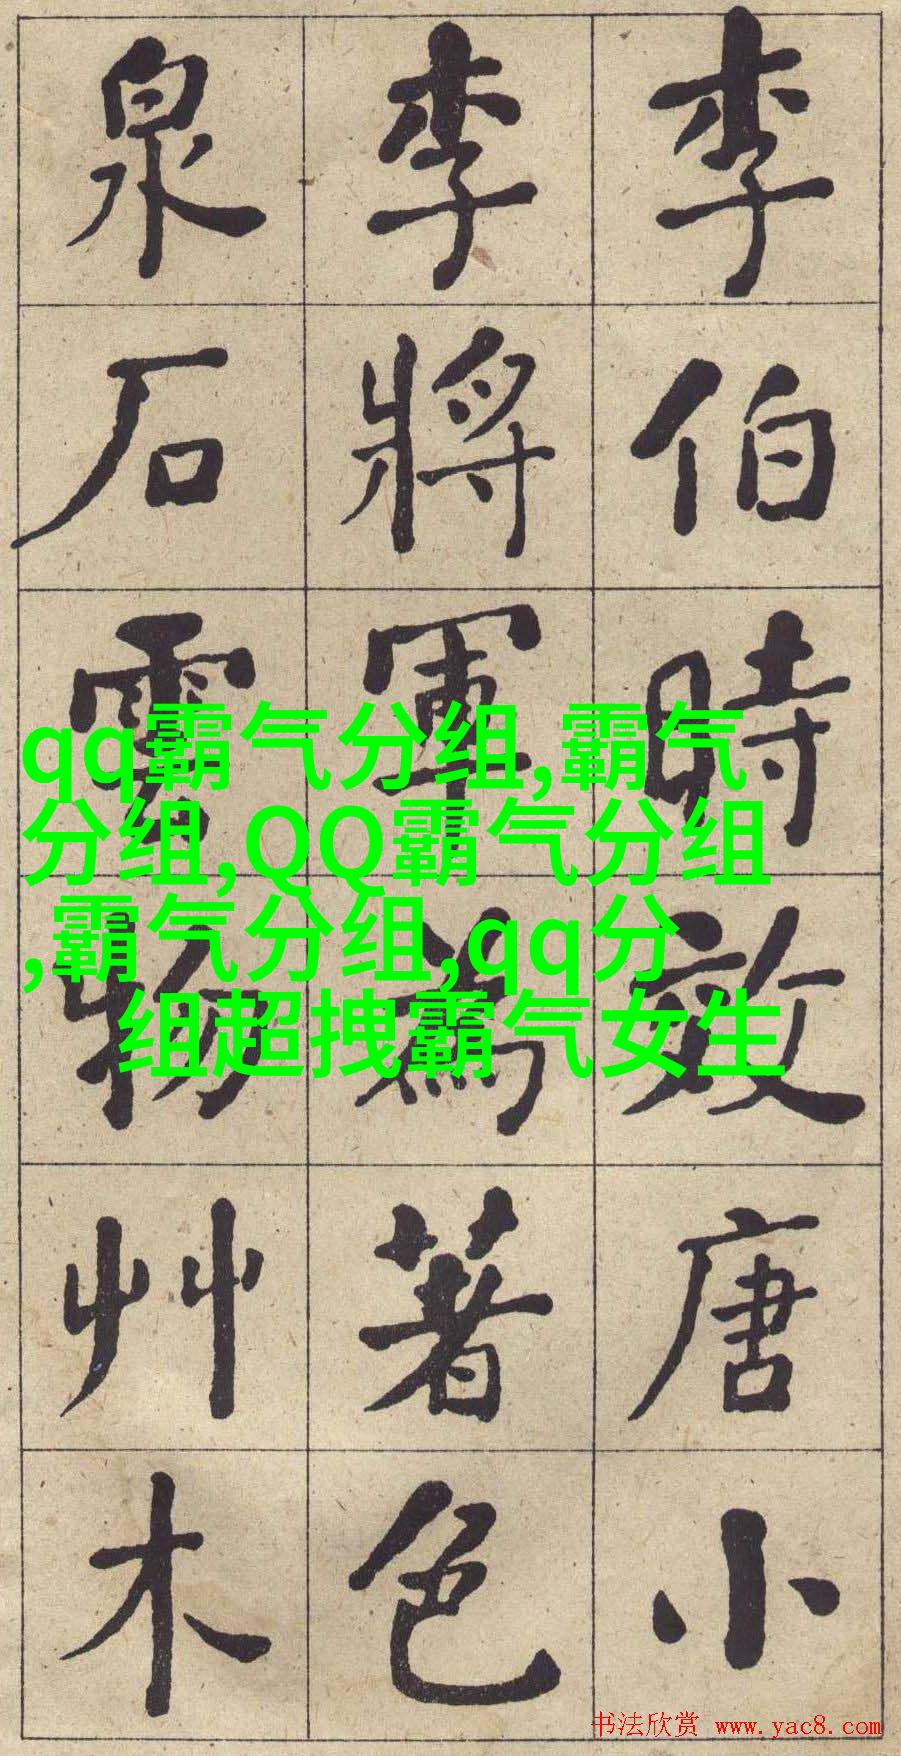 李伯時效唐小
李將軍為著色
泉石雲物艸木
qq霸气分组,霸气
分组,QQ霸气分组
,霸气分组,qq分
组超拽霸气女生
书法欣赏 www.yac8.com